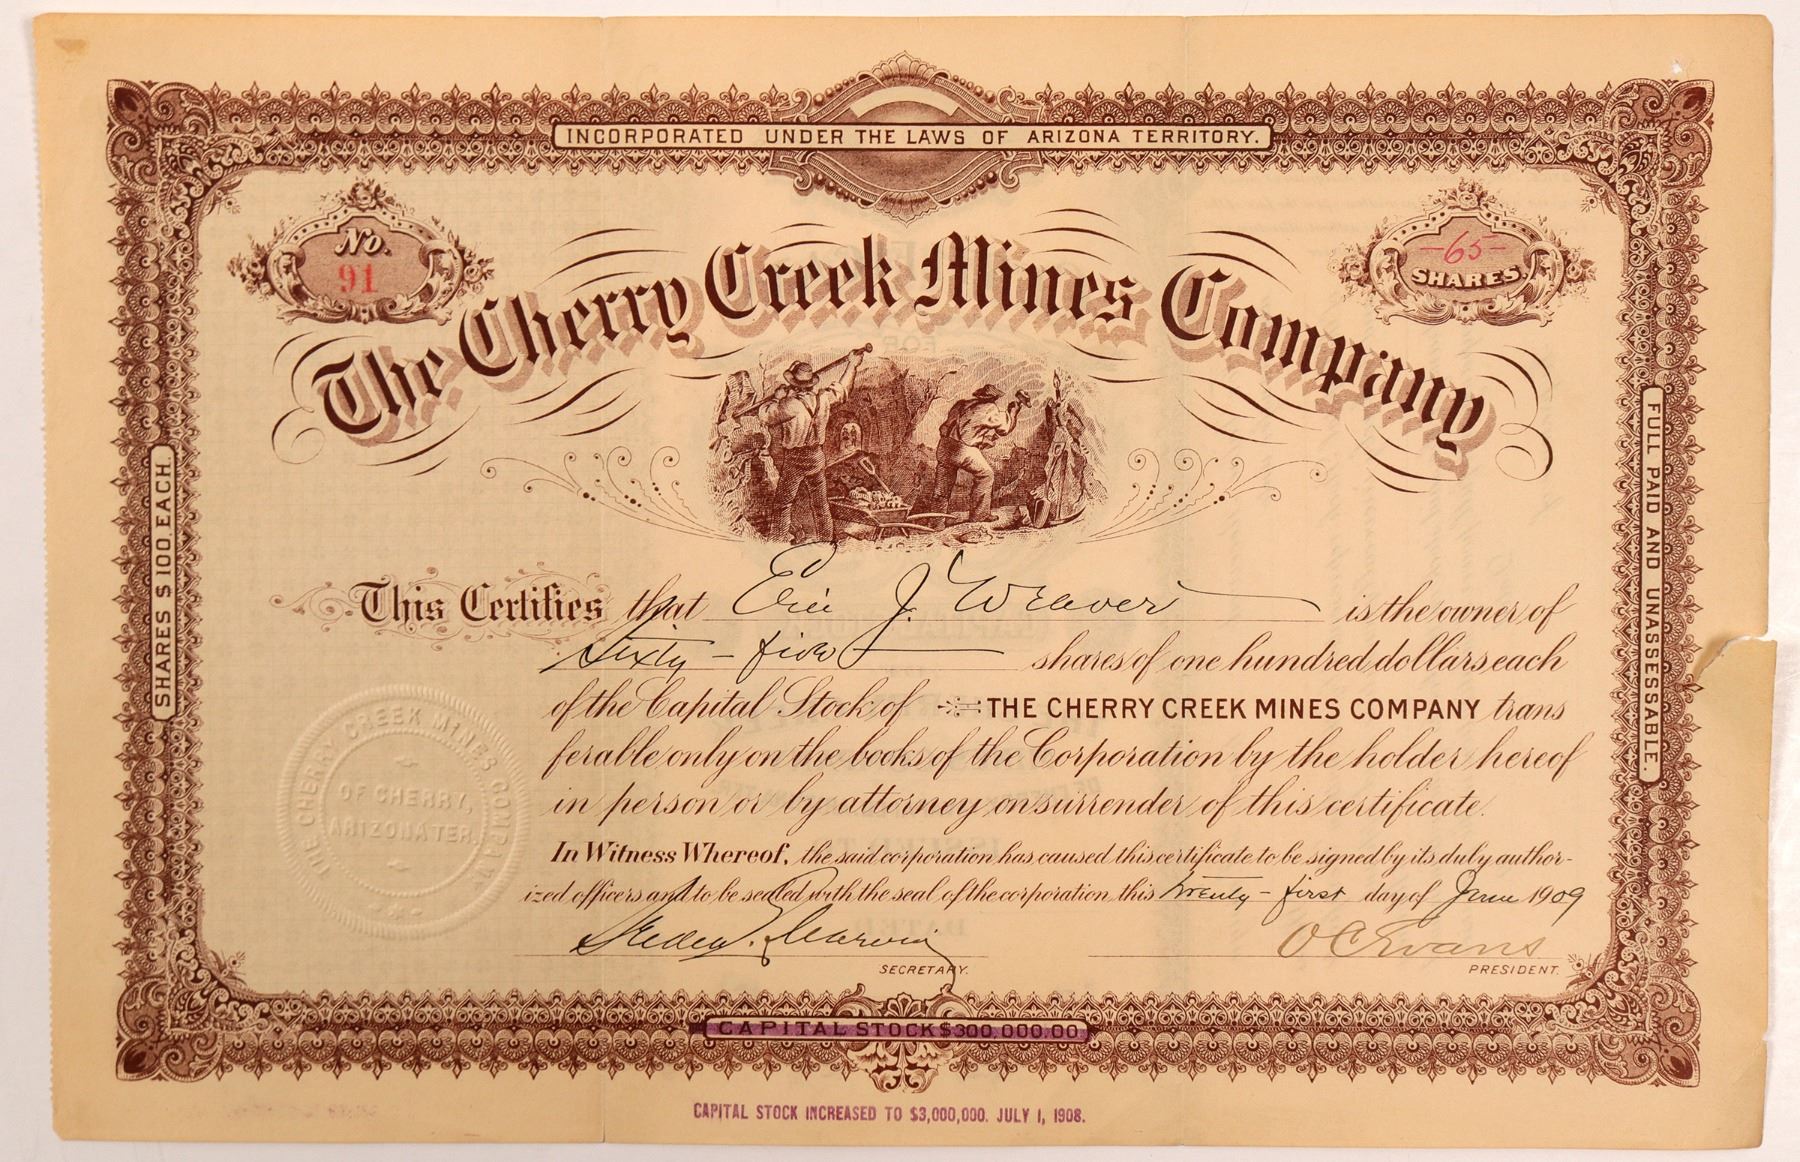 INCORPORATED UNDER THE LAWS OF ARIZONA TERRITORY.
No.
91
-65-
SHARES.
The Cherry Creek Mines Company
SHARES $100 EACH.
FULL PAID AND UNASSESSABLE.
This Certifies that J. Weaver is the owner of
Sixty-five shares of one hundred dollars each
of the Capital Stock of THE CHERRY CREEK MINES COMPANY trans
ferable only on the books of the Corporation by the holder hereof
in person or by attorney on surrender of this certificate.
In Witness Whereof, the said corporation has caused this certificate to be signed by its duly author-
ized officers and to be sealed with the seal of the corporation this twenty-first day of June 1909
THE CHERRY CREEK MINES COMPANY
OF CHERRY,
ARIZONA TER.
O C Evans
SECRETARY.
PRESIDENT.
CAPITAL STOCK $300,000.00
CAPITAL STOCK INCREASED TO $3,000,000. JULY 1, 1908.